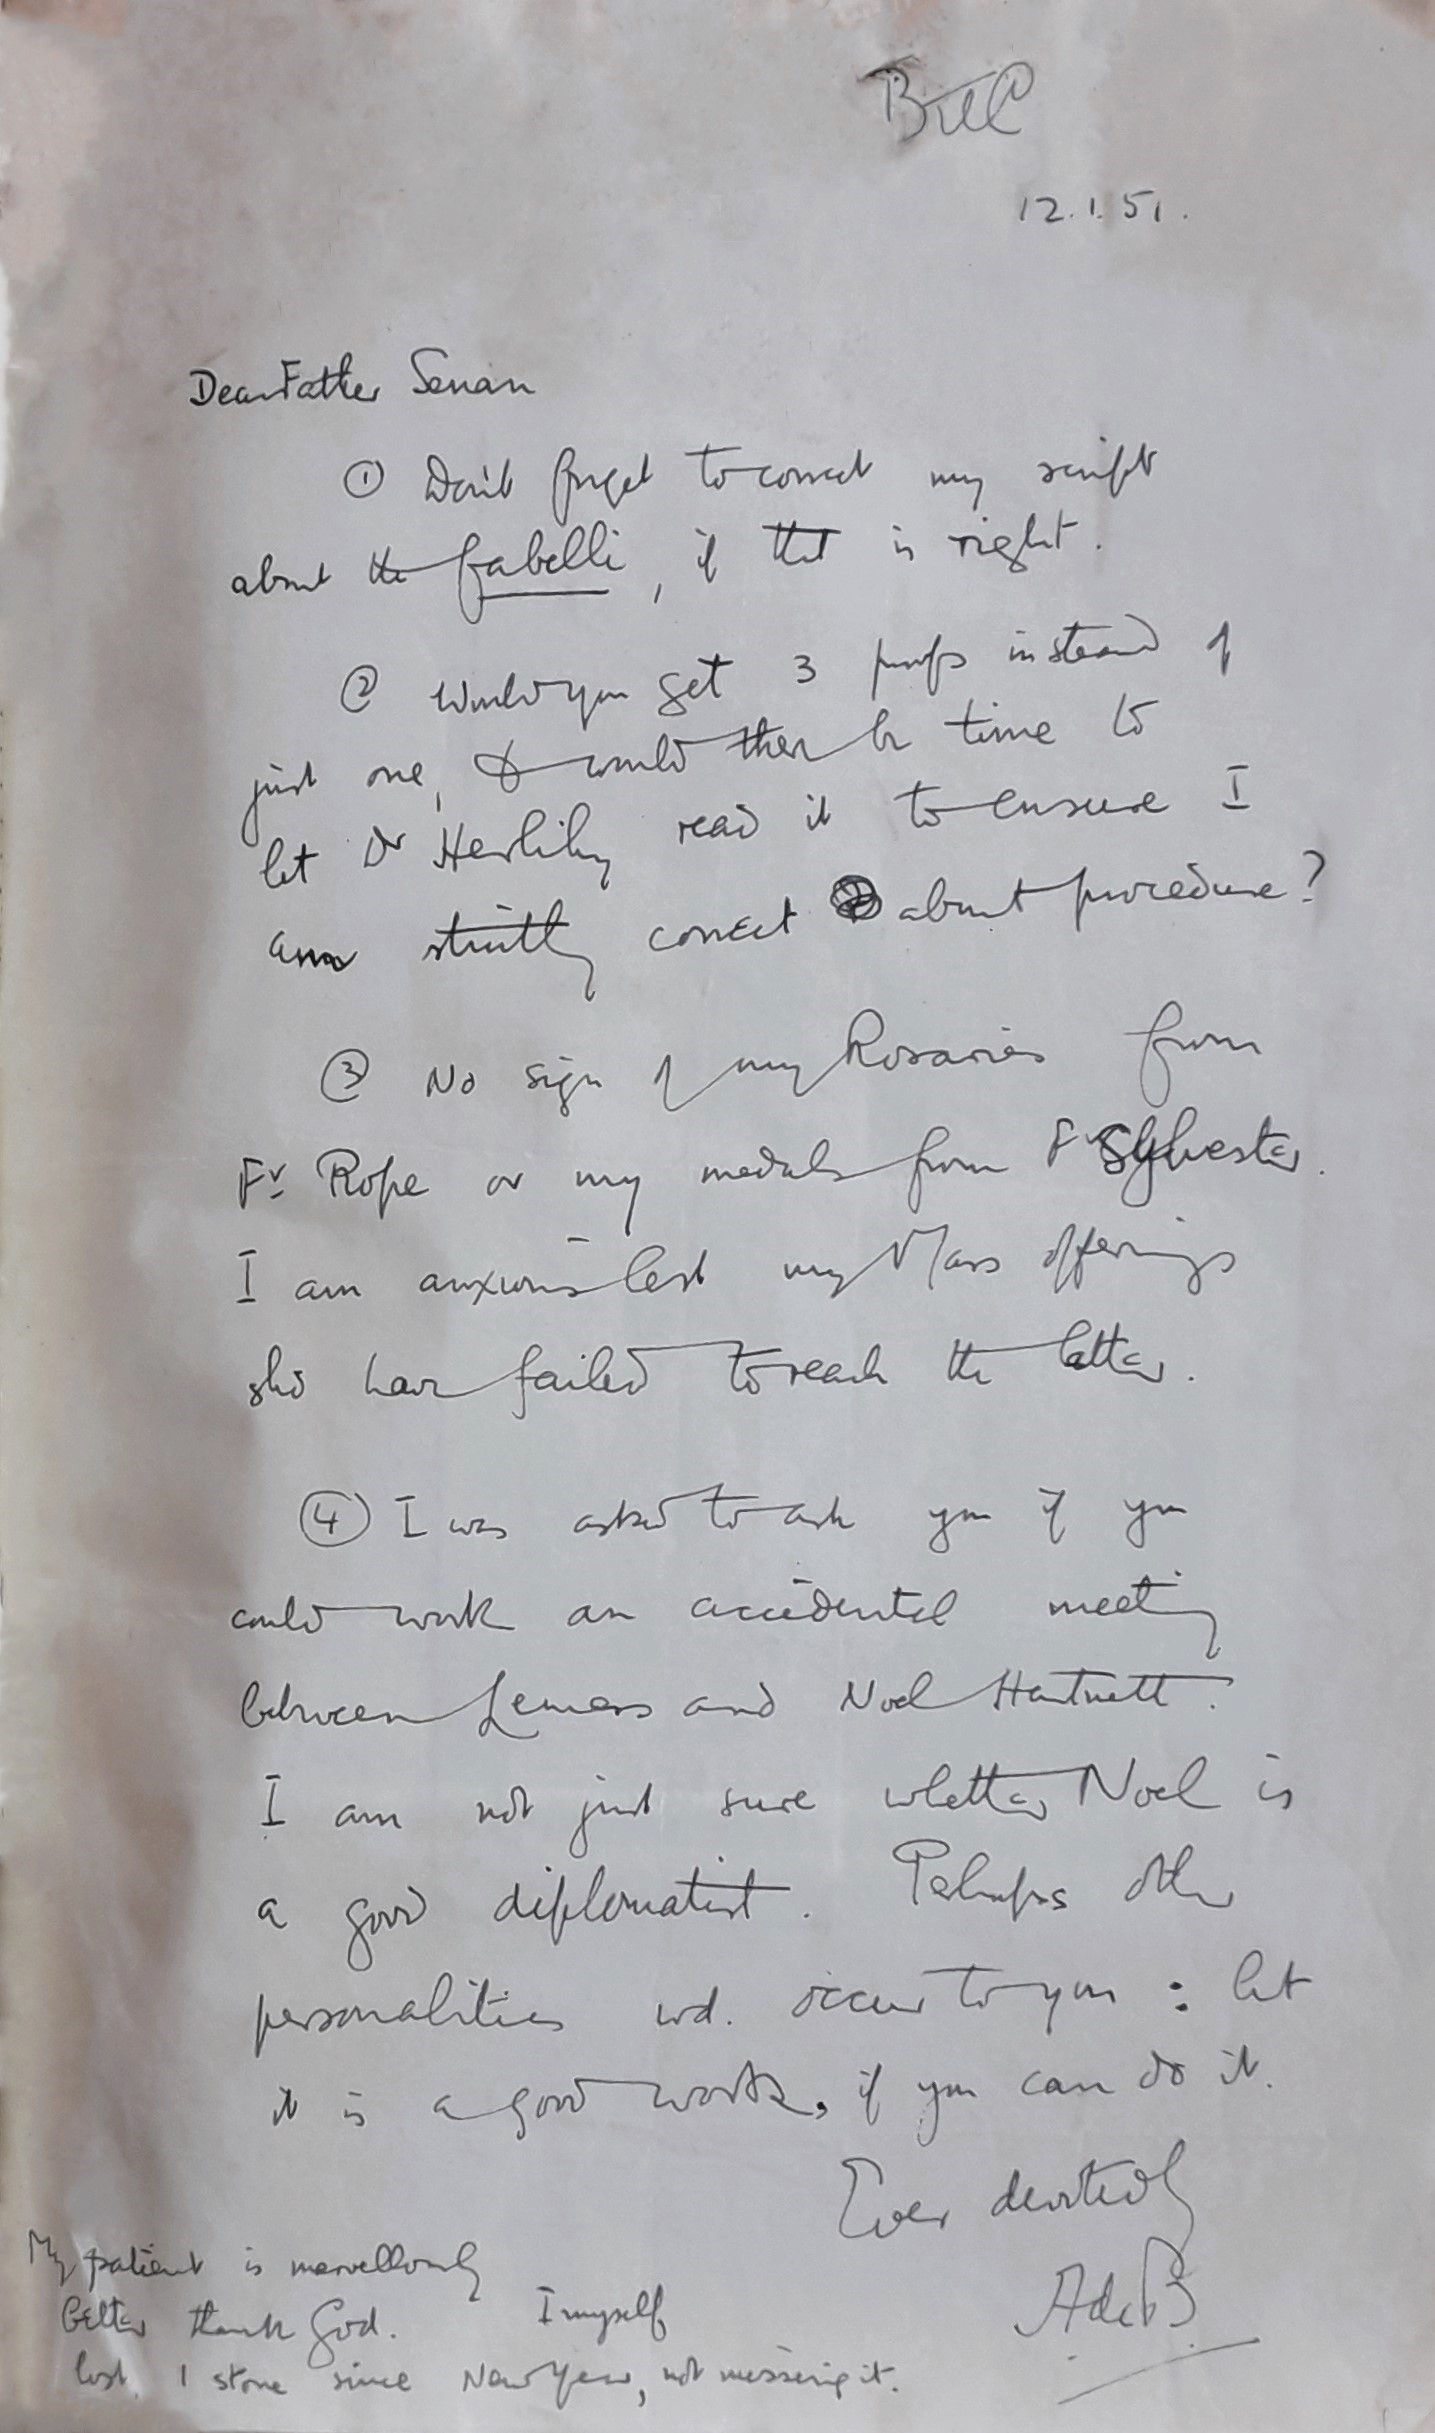 12.1.51.
Dear Father Senan
① Don't forget to correct my script
about the fabelli, if that is right.
② Would you get 3 proofs instead of
just one, & would there be time to
let Dr Herlihy read it to ensure I
am strictly correct about procedure?
③ No sign of my Rosaries from
Fr Rope or my medals from Fr Sylvester.
I am anxious lest my Mass offerings
shd have failed to reach the latter.
④ I was asked to ask you if you
could work an accidental meeting
between Lemass and Noel Hartnett.
I am not just sure whether Noel is
a good diplomatist. Perhaps other
personalities wd. occur to you : but
it is a good work, if you can do it.
Ever devotedly
AdeB
My patient is marvellously
better thank God. I myself
lost 1 stone since New Year, not missing it.